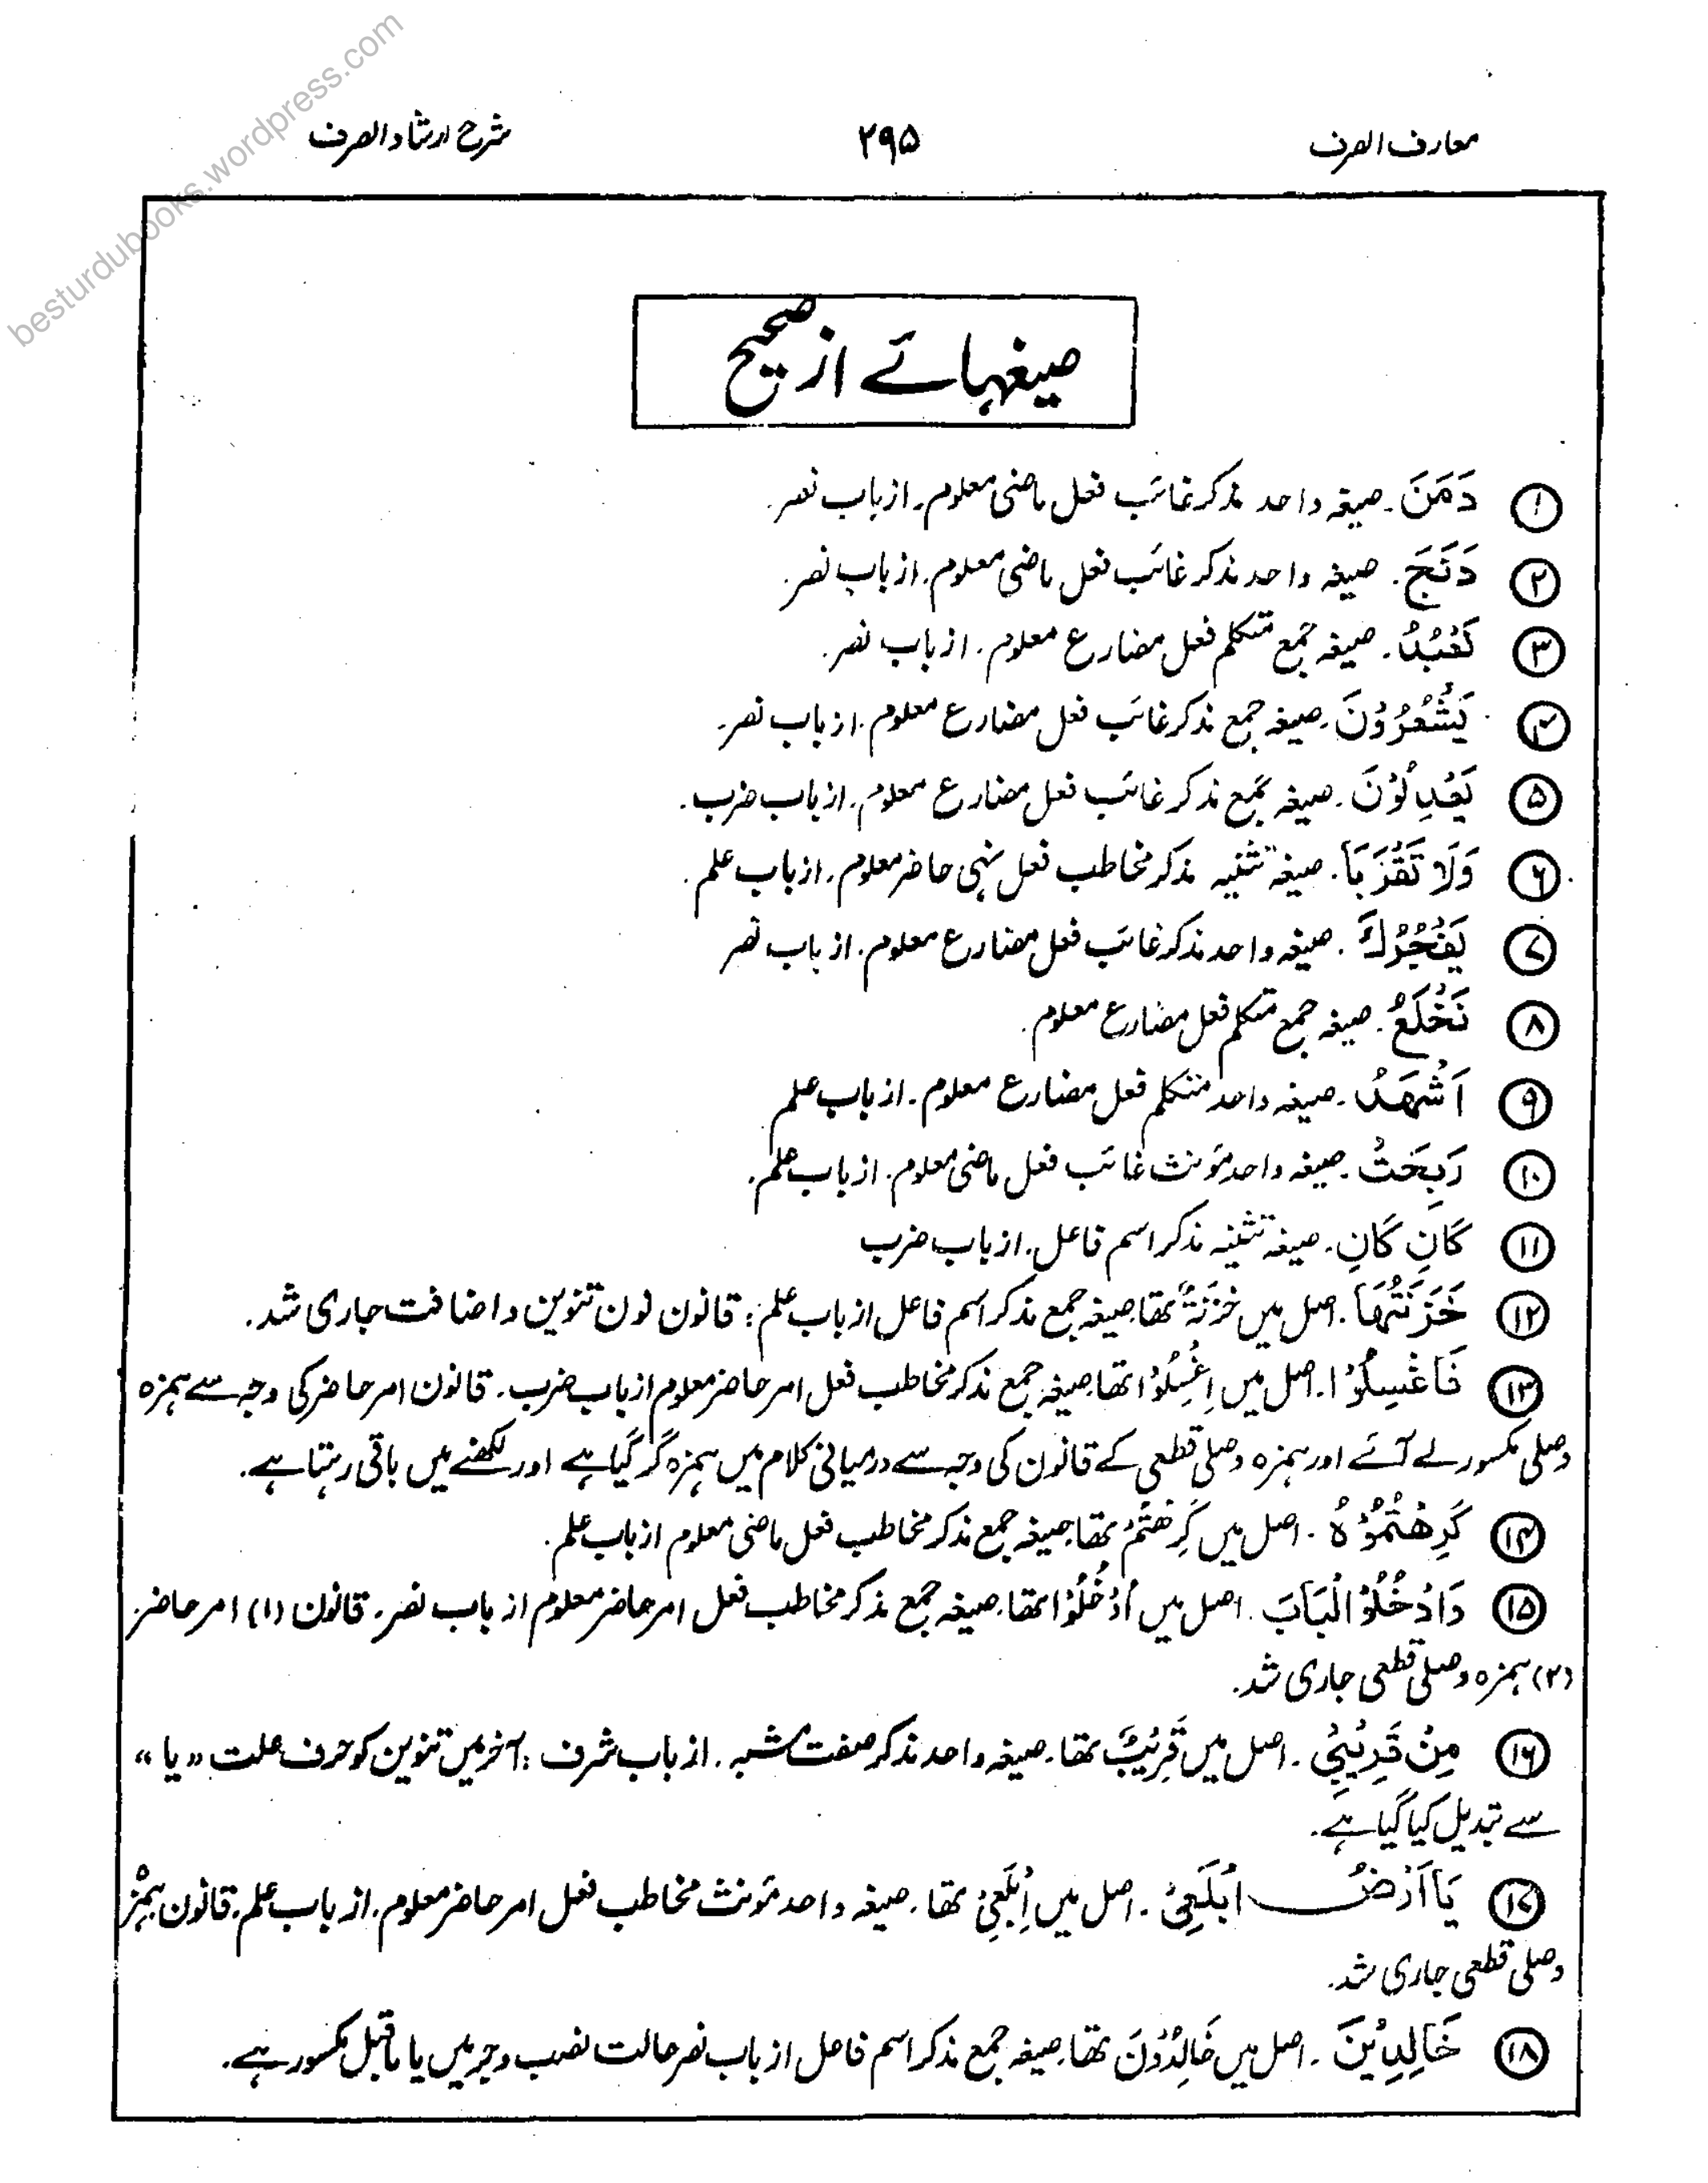 besturdubooks.wordpress.com
معارف الصرف ۲۹۵ شرح ارشاد الصرف
صیغہائے از صحیح
۱ دَمَنَ۔ صیغہ واحد مذکر غائب فعل ماضی معلوم۔ از باب نصر۔
۲ دَنَجَ۔ صیغہ واحد مذکر غائب فعل ماضی معلوم۔ از باب نصر۔
۳ نَعْبُدُ۔ صیغہ جمع متکلم فعل مضارع معلوم۔ از باب نصر۔
۴ يَشْعُرُوْنَ۔ صیغہ جمع مذکر غائب فعل مضارع معلوم۔ از باب نصر۔
۵ يَعْدِلُوْنَ۔ صیغہ جمع مذکر غائب فعل مضارع معلوم۔ از باب ضرب۔
۶ وَلَا تَقْرَبَا۔ صیغہ تثنیہ مذکر مخاطب فعل نہی حاضر معلوم۔ از باب علم۔
۷ يَفْجُرُكَ۔ صیغہ واحد مذکر غائب فعل مضارع معلوم۔ از باب نصر
۸ نَخْلَعُ۔ صیغہ جمع متکلم فعل مضارع معلوم۔
۹ اَشْهَدُ۔ صیغہ واحد متکلم فعل مضارع معلوم۔ از باب علم
۱۰ رَبِحَتْ۔ صیغہ واحد مؤنث غائب فعل ماضی معلوم۔ از باب علم۔
۱۱ كَانِ كَانِ۔ صیغہ تثنیہ مذکر اسم فاعل۔ از باب ضرب
۱۲ خَزَنَتُهَا۔ اصل میں خَزَنَةٌ تھا صیغہ جمع مذکر اسم فاعل از باب علم: قانون نون تنوین و اضافت جاری شد۔
۱۳ فَاغْسِلُوْا۔ اصل میں اِغْسِلُوْا تھا صیغہ جمع مذکر مخاطب فعل امر حاضر معلوم از باب ضرب۔ قانون امر حاضر کی وجہ سے ہمزہ
وصلی مکسور لے آئے اور ہمزہ وصلی قطعی کے قانون کی وجہ سے درمیانی کلام میں ہمزہ گر گیا ہے اور لکھنے میں باقی رہتا ہے۔
۱۴ كَرِهْتُمُوْهُ۔ اصل میں كَرِهْتُمْ تھا صیغہ جمع مذکر مخاطب فعل ماضی معلوم از باب علم۔
۱۵ وَادْخُلُوْا الْبَابَ۔ اصل میں اُدْخُلُوْا تھا۔ صیغہ جمع مذکر مخاطب فعل امر حاضر معلوم از باب نصر۔ قانون (۱) امر حاضر
(۲) ہمزہ وصلی قطعی جاری شد۔
۱۶ مِنْ قَرِيْبِيْ۔ اصل میں قَرِيْبٌ تھا۔ صیغہ واحد مذکر صفت مشبہ۔ از باب شرف: آخر میں تنوین کو حرف علت «یا»
سے تبدیل کیا گیا ہے۔
۱۷ يَا اَرْضُ ابْلَعِيْ۔ اصل میں اِبْلَعِيْ تھا۔ صیغہ واحد مؤنث مخاطب فعل امر حاضر معلوم۔ از باب علم۔ قانون ہمزہ
وصلی قطعی جاری شد۔
۱۸ خَالِدِيْنَ۔ اصل میں خَالِدُوْنَ تھا۔ صیغہ جمع مذکر اسم فاعل از باب نصر حالت نصب و جر میں یا ماقبل مکسور ہے۔